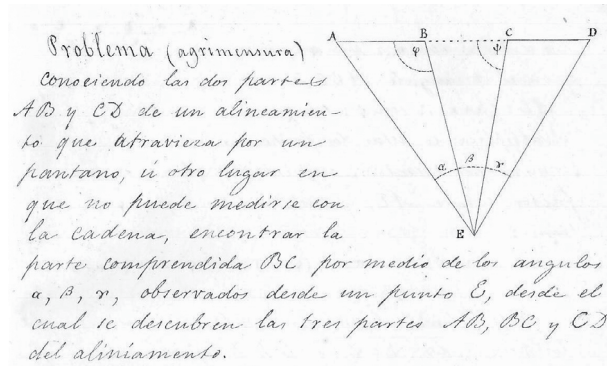 A B C D
Problema (agrimensura)
φ ψ
Conociendo las dos partes
AB y CD de un alineamien-
to que atravieza por un
pantano, ú otro lugar en
α β γ
que no puede medirse con
la cadena, encontrar la
E
parte comprendida BC por medio de los angulos
α, β, γ, observados desde un punto E, desde el
cual se descubren las tres partes AB, BC y CD
del aliniamento.